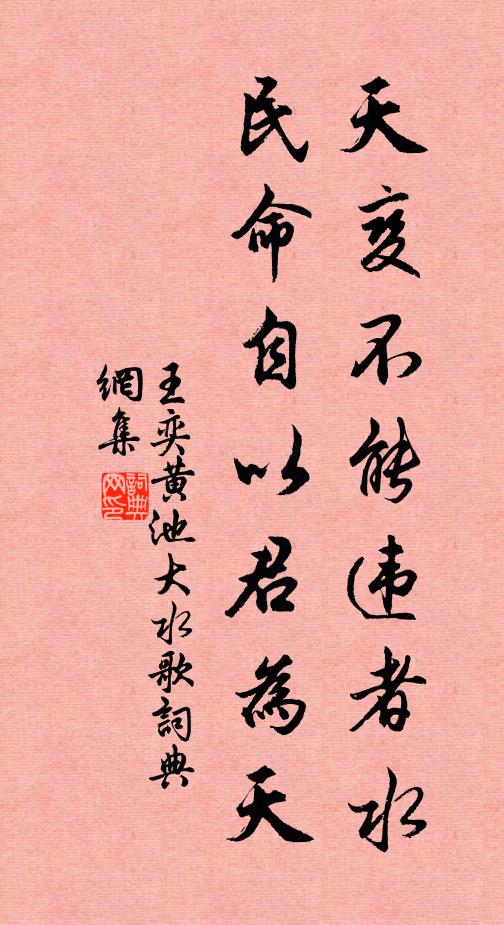 天变不能违者水
民命自以君為天
王奕黄池大水歌詞典
網集
詞典
网印